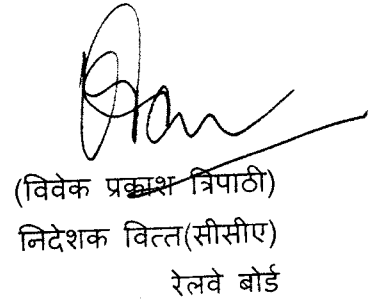 (विवेक प्रकाश त्रिपाठी)
निदेशक वित्त(सीसीए)
रेलवे बोर्ड